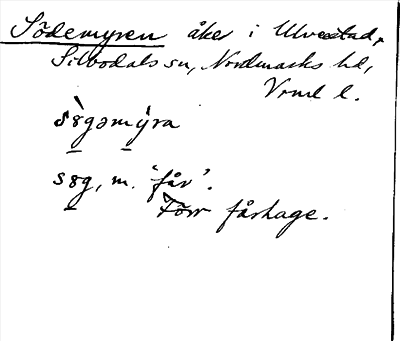 Södemyren åker i Ulvestad,
Silbodals sn, Nordmarks hd,
Vrml l.
sø̀gəmýra
søg, m. 'får'.
Förr fårhage.